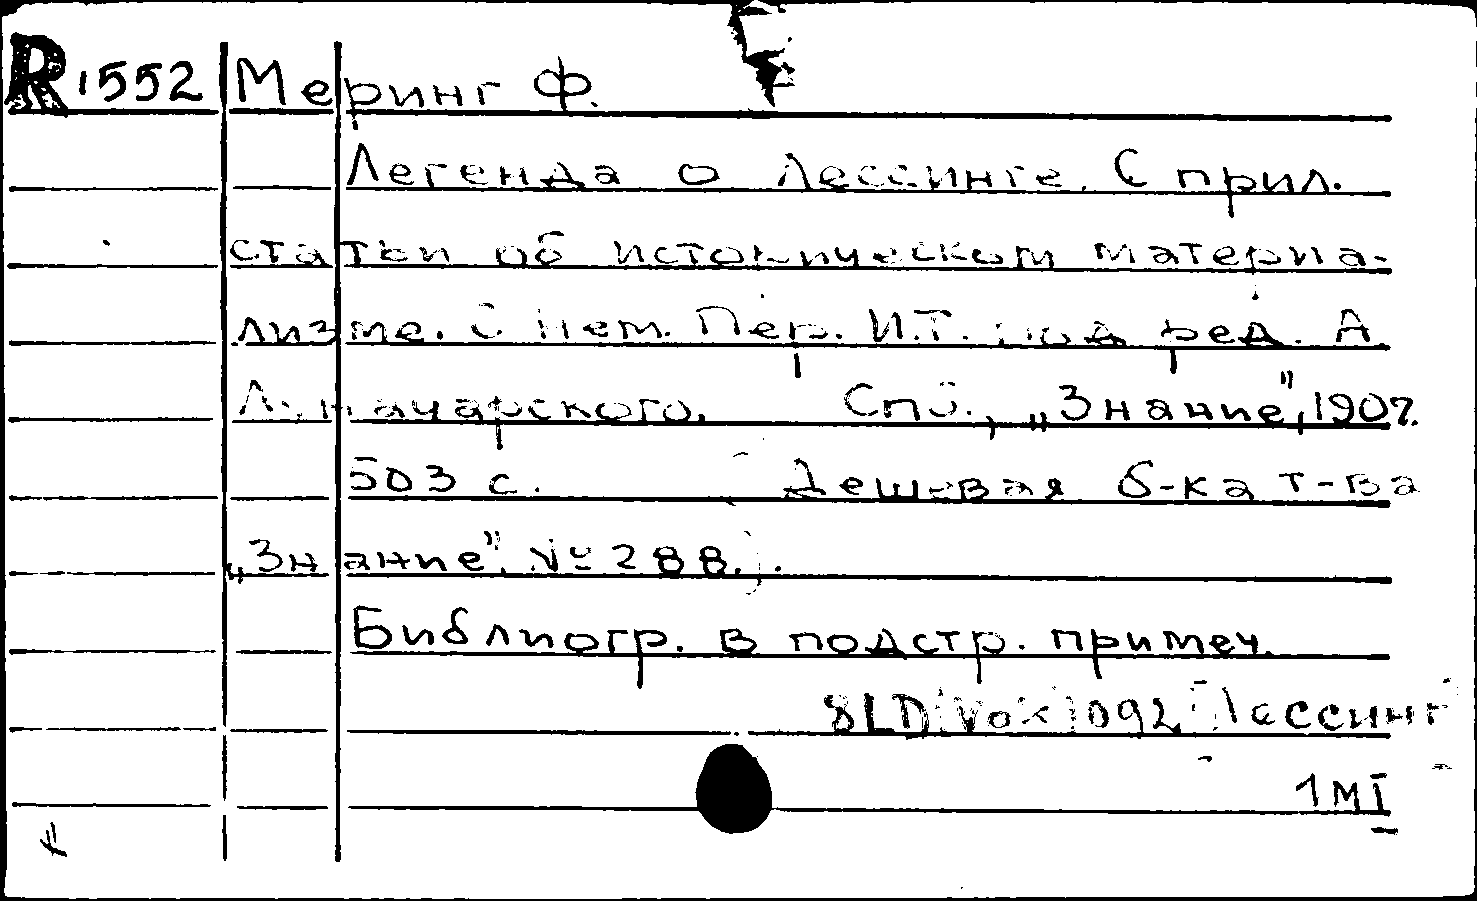 R 1552 Меринг Ф.
Легенда о Лессинге. С прил.
статьи об историческом материа-
лизме. С нем. Пер. И.Т. под ред. А.
Луначарского. Спб., „Знание", 1907.
503 с. (Дешевая б-ка т-ва
„Знание". № 288.).
Библиогр. в подстр. примеч.
8LD(Vok)092[Лессинг]
1МI